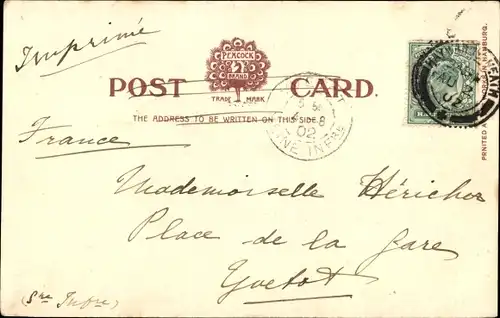 Imprimé
PEACOCK
BRAND
TRADE MARK
POST CARD.
THE ADDRESS TO BE WRITTEN ON THIS SIDE
France
02
INFRE
Mademoiselle Héricher
Place de la Gare
Yvetot
(Sne Infre)